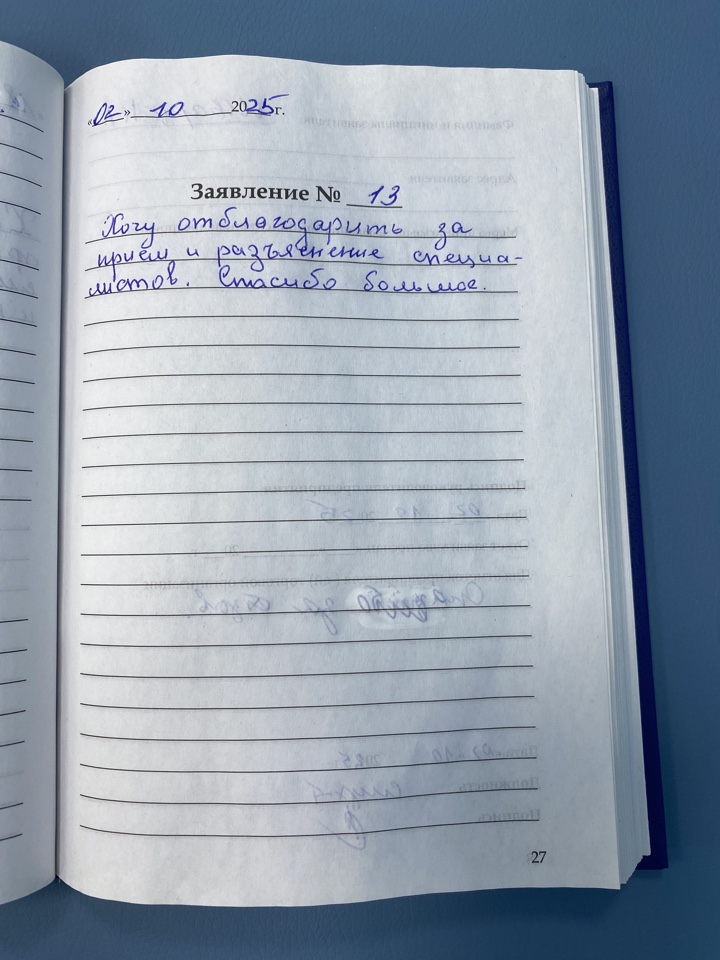 «02» 10 2025г.
Заявление № 13
Хочу отблагодарить за
приём и разъяснение специа-
листов. Спасибо большое.
27